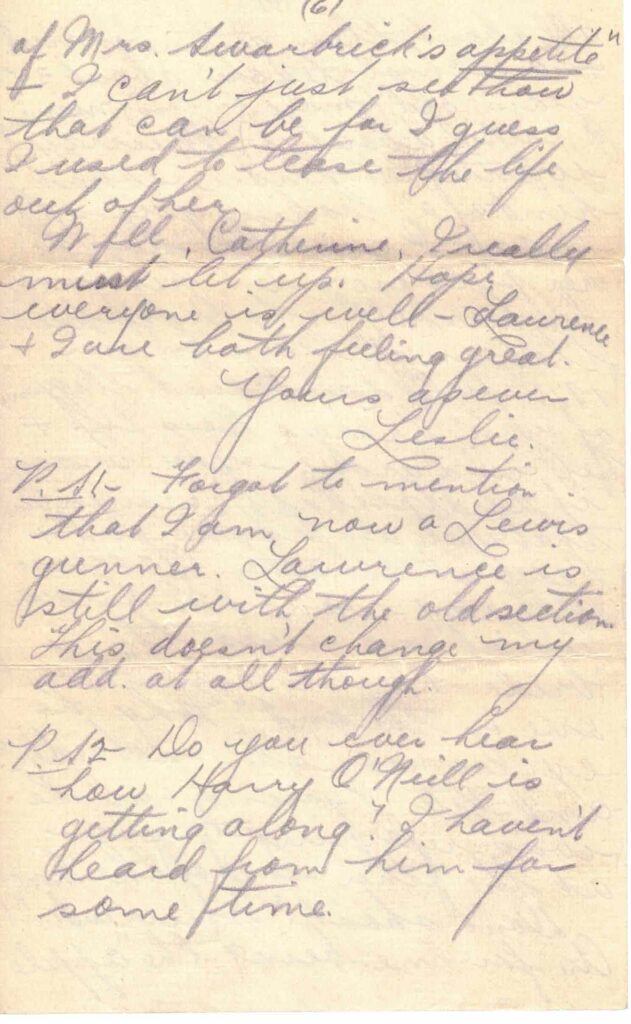 (6)
of Mrs. Swarbrick's appetite"
+ I can't just see how
that can be for I guess
I used to tease the life
out of her.
Well, Catherine, I really
must let up. Hope
everyone is well - Lawrence
+ I are both feeling great.
Yours as ever
Leslie.
P.S1- Forgot to mention
that I am now a Lewis
gunner. Lawrence is
still with the old section.
This doesn't change my
add. at all though.
P.S2- Do you ever hear
how Harry O'Neill is
getting along? I haven't
heard from him for
some time.